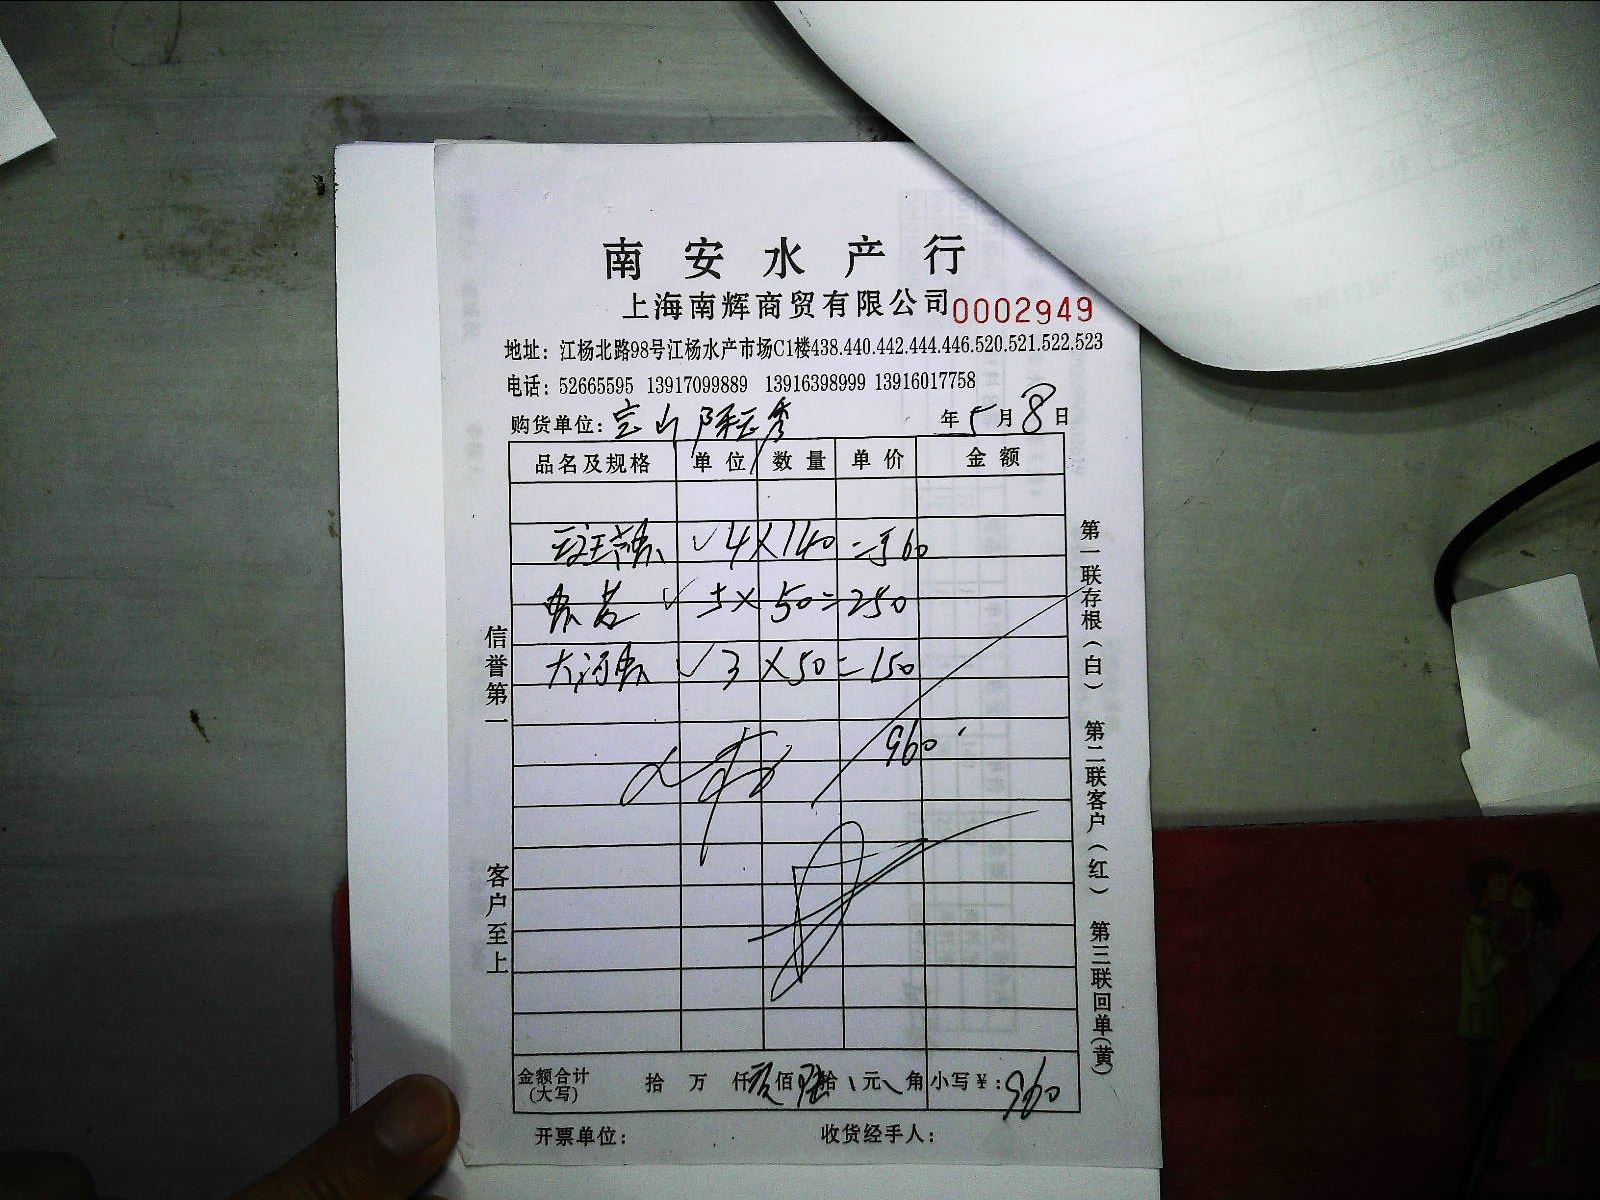 南安水产行
上海南辉商贸有限公司 0002949
地址：江杨北路98号江杨水产市场C1楼438.440.442.444.446.520.521.522.523
电话：52665595 13917099889 13916398999 13916017758
购货单位：宝山陈云秀 年5月8日
品名及规格 单位 数量 单价 金额
4×140=560
5×50=250
大河 3×50=150
960
金额合计(大写) 拾 万 仟 玖佰陆拾 元 角 小写￥：960
开票单位： 收货经手人：
信誉第一
客户至上
第一联存根(白) 第二联客户(红) 第三联回单(黄)